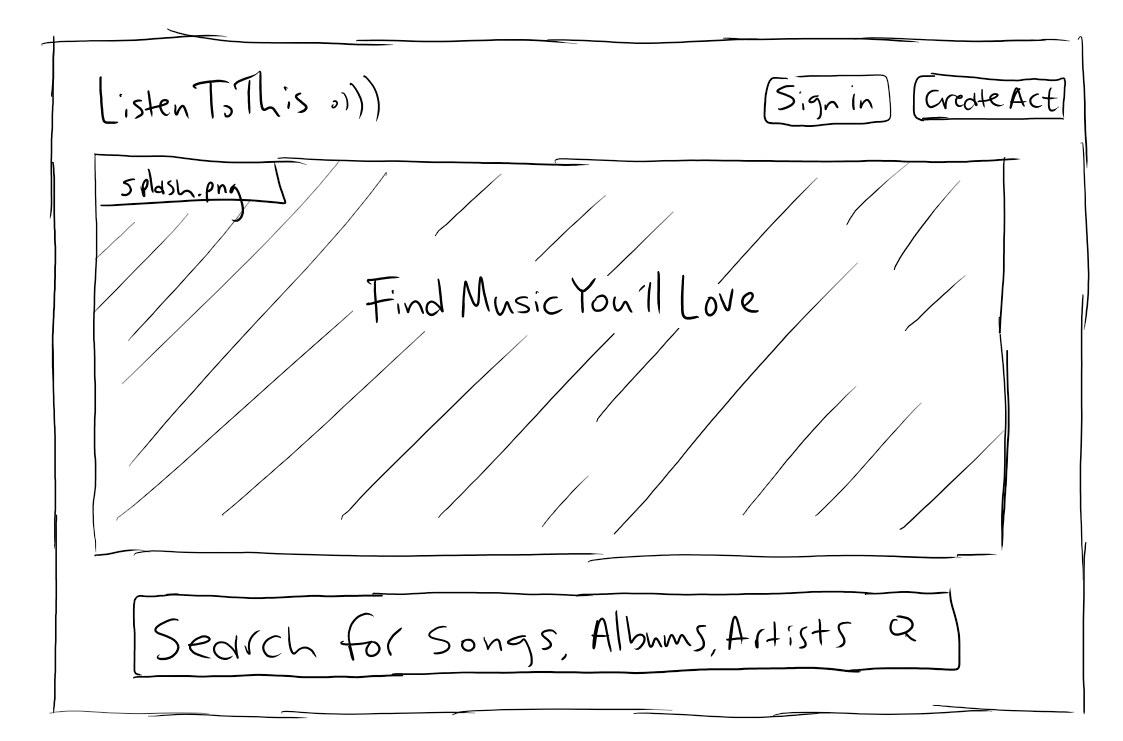 Listen To This
Sign in
Create Act
splash.png
Find Music You'll Love
Search for Songs, Albums, Artists